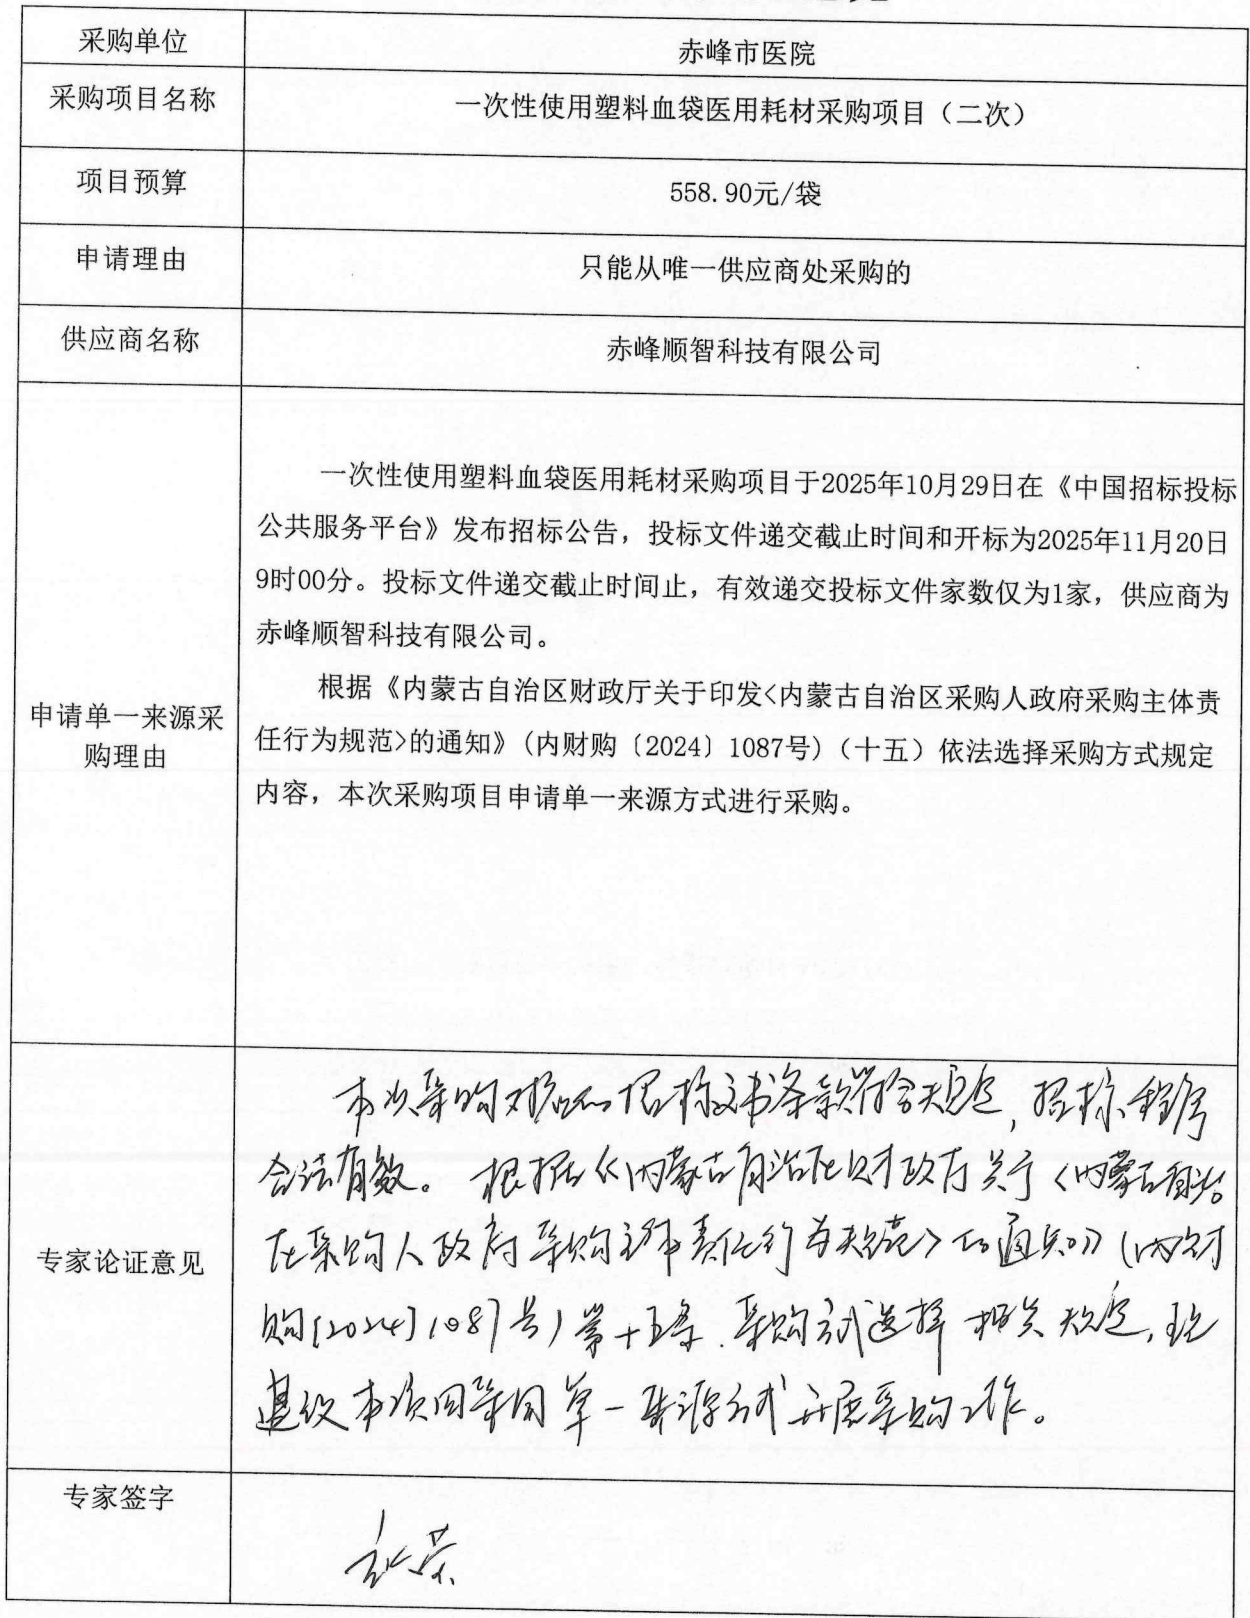 采购单位
赤峰市医院
采购项目名称
一次性使用塑料血袋医用耗材采购项目（二次）
项目预算
558.90元/袋
申请理由
只能从唯一供应商处采购的
供应商名称
赤峰顺智科技有限公司
申请单一来源采
购理由
一次性使用塑料血袋医用耗材采购项目于2025年10月29日在《中国招标投标
公共服务平台》发布招标公告，投标文件递交截止时间和开标为2025年11月20日
9时00分。投标文件递交截止时间止，有效递交投标文件家数仅为1家，供应商为
赤峰顺智科技有限公司。
根据《内蒙古自治区财政厅关于印发<内蒙古自治区采购人政府采购主体责
任行为规范>的通知》(内财购〔2024〕1087号)（十五）依法选择采购方式规定
内容，本次采购项目申请单一来源方式进行采购。
专家论证意见
本次采购 招标文书条款符合规定，招标程序
合法有效。根据《内蒙古自治区财政厅关于〈内蒙古自治
区采购人政府采购主体责任行为规范〉的通知》(内财
购[2024]1087号)第十五条.采购方式选择相关规定,
建议本项目采用单一来源方式开展采购工作。
专家签字